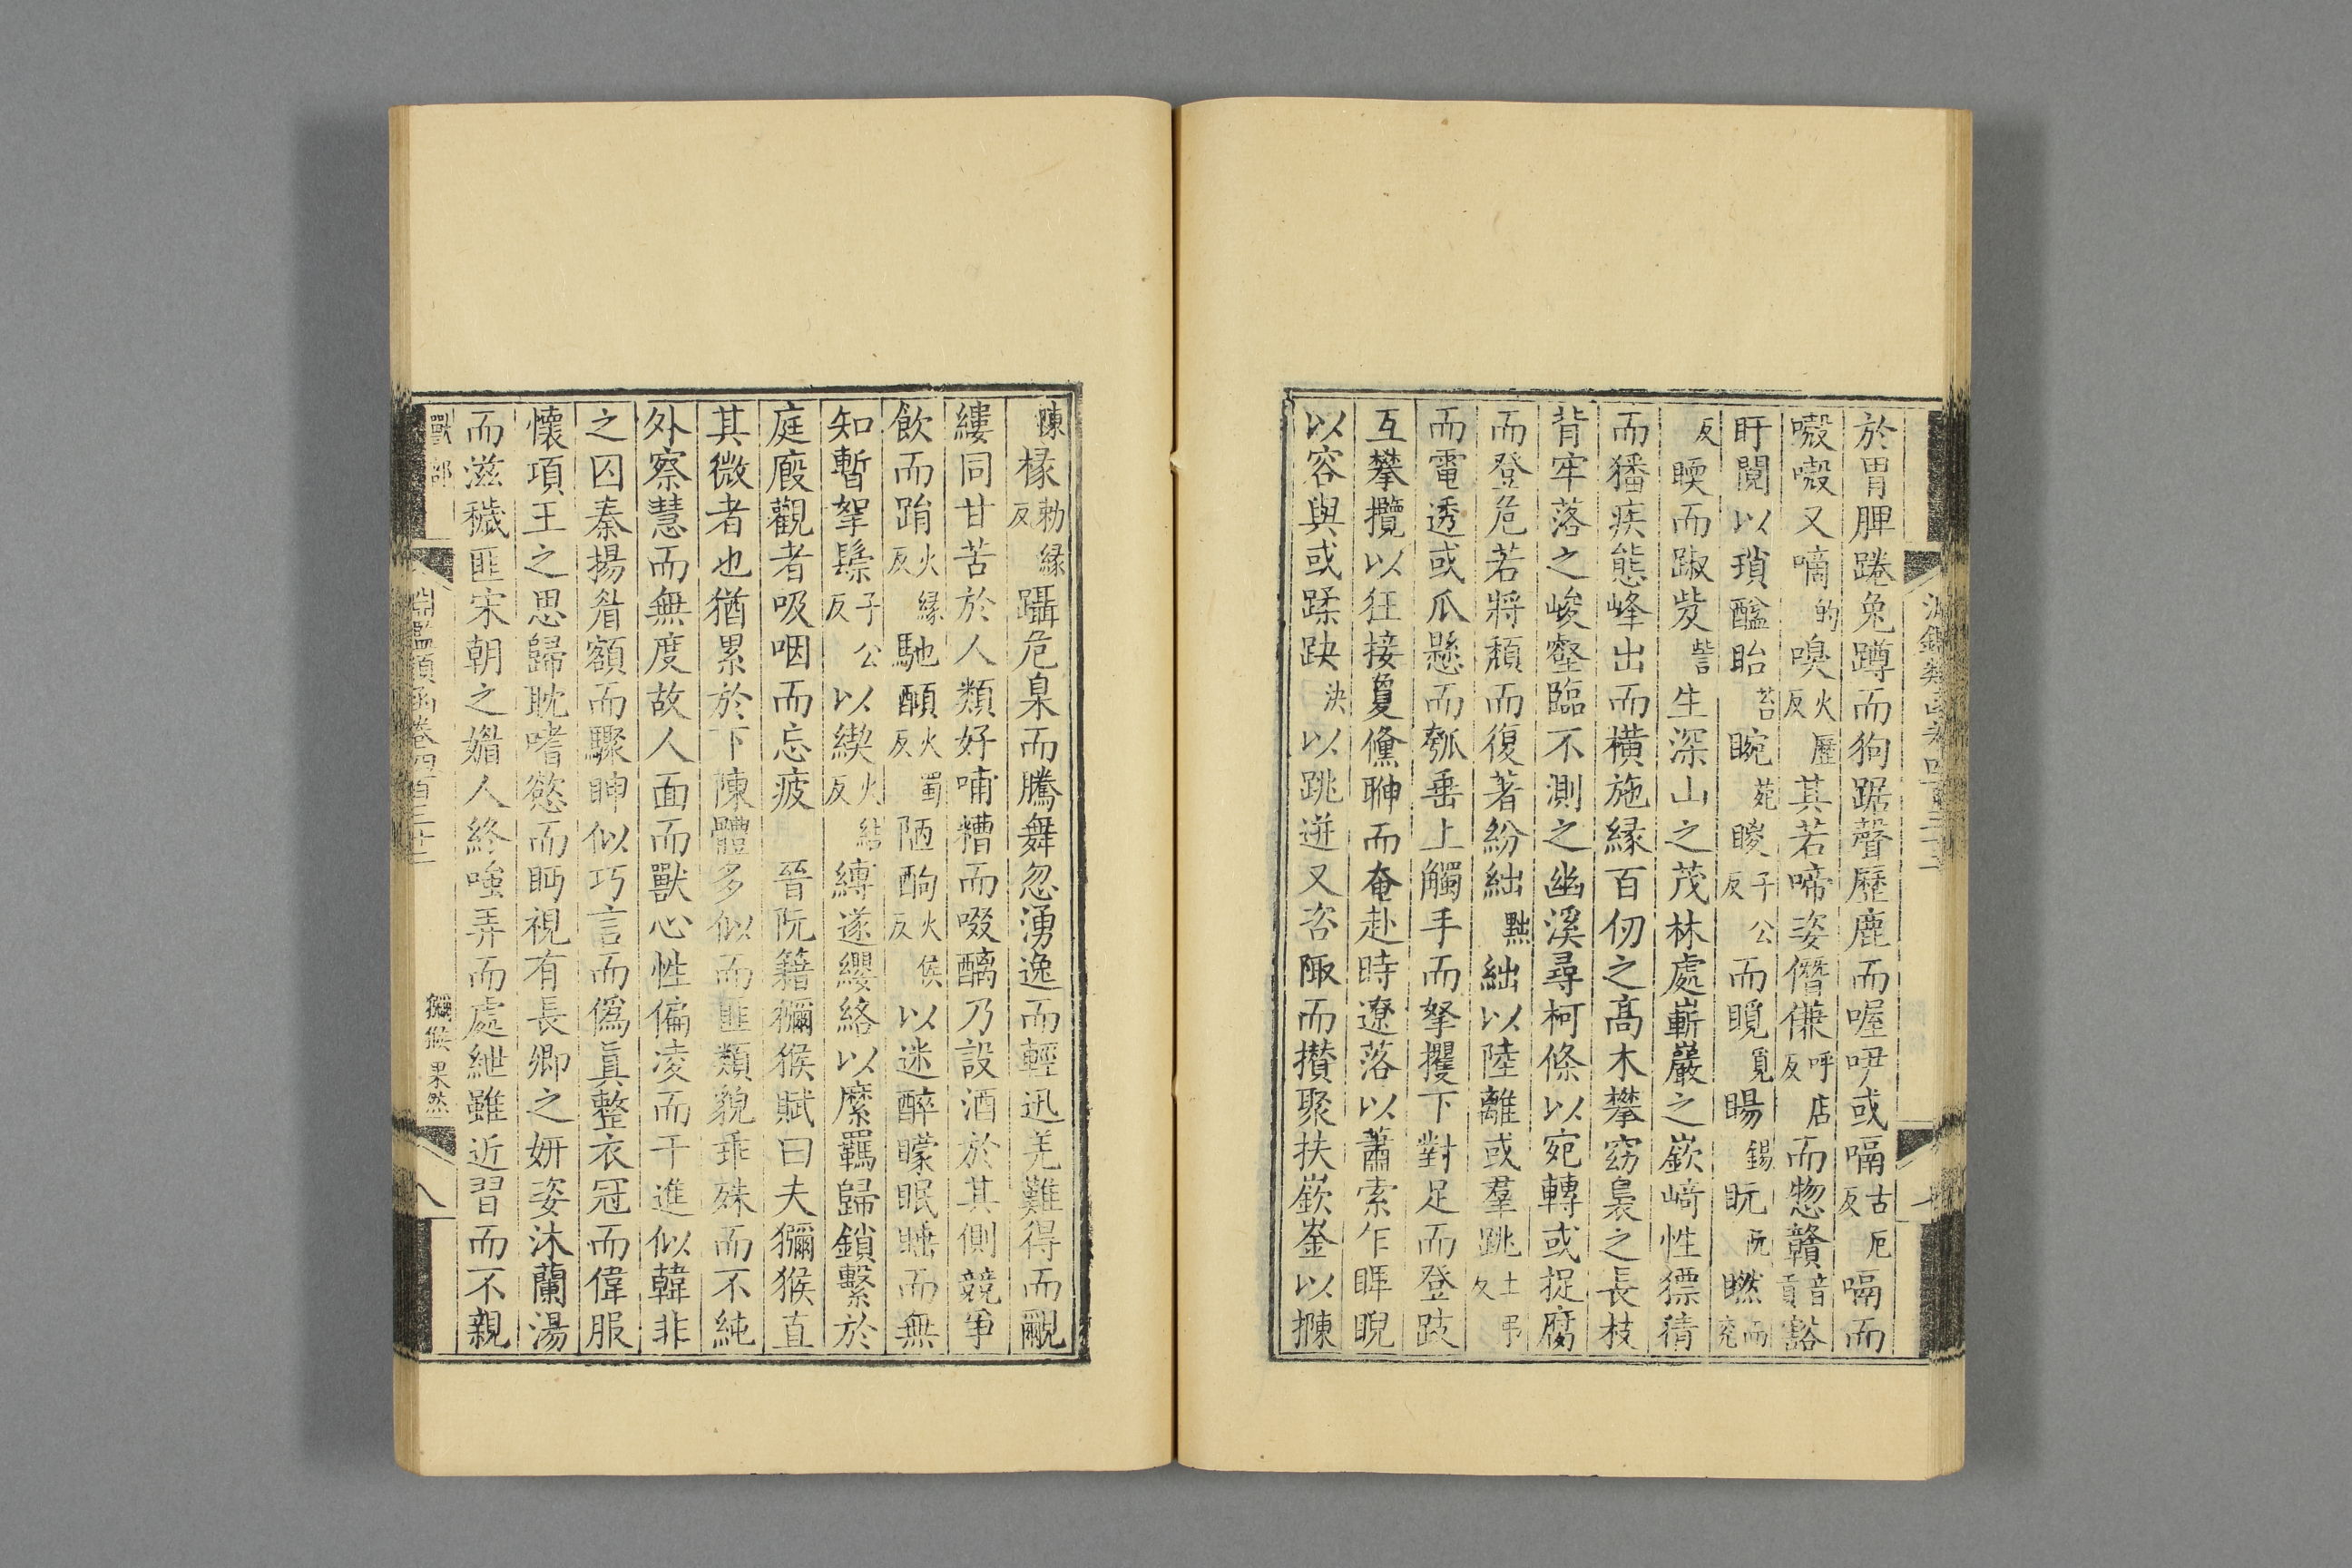 於胃脾踡兔蹲而狗踞聲歷鹿而喔咿或嗝古厄反嗝而
嗀嗀又嘀的嗅火歷反其若啼姿僭傔呼店反而惣贛音貢豁
盱閱以瑣䤈眙苔睕苑䁓子公反而䁵覓䁑錫眃阮瞹而充
反䁔而踧㱔訾生深山之茂林處嶄巖之嶔﨑性獟猜
而獦疾態峰出而横施緣百仞之高木攀窈裊之長枝
背牢落之峻壑臨不測之幽溪尋柯條以宛轉或捉腐
而登危若將頽而復著紛絀䵝絀以陸離或羣跳土弔反
而電透或瓜懸而瓠垂上觸手而拏攫下對足而登跂
互攀攬以狂接夐儵眒而奄赴時遼落以蕭索乍睥睨
以容與或蹂趹決以跳迸又咨陬而攅聚扶嶔崟以㨂
陳㯌勅緣反躡危臬而騰舞忽湧逸而輕迅羌難得而覼
縷同甘苦於人類好哺糟而啜醨乃設酒於其側競爭
飲而䠳火緣反馳䣺火蜀反陋酗火侯反以迷醉矇眠睡而無
知暫拏鬃子公反以緓火結反縳遂纓絡以縻羈歸鎖繫於
庭廄觀者吸咽而忘疲　晉阮籍獼猴賦曰夫獼猴直
其微者也猶累於下陳體多似而匪類貌乖殊而不純
外察慧而無度故人面而獸心性偏凌而干進似韓非
之囚秦揚眉額而驟眒似巧言而偽真整衣冠而偉服
懷項王之思歸耽嗜慾而眄視有長卿之妍姿沐蘭湯
而滋穢匪宋朝之媚人終嗤弄而處紲雖近習而不親
獸部
淵鑑類函卷四百三十二
獼猴 果然
八